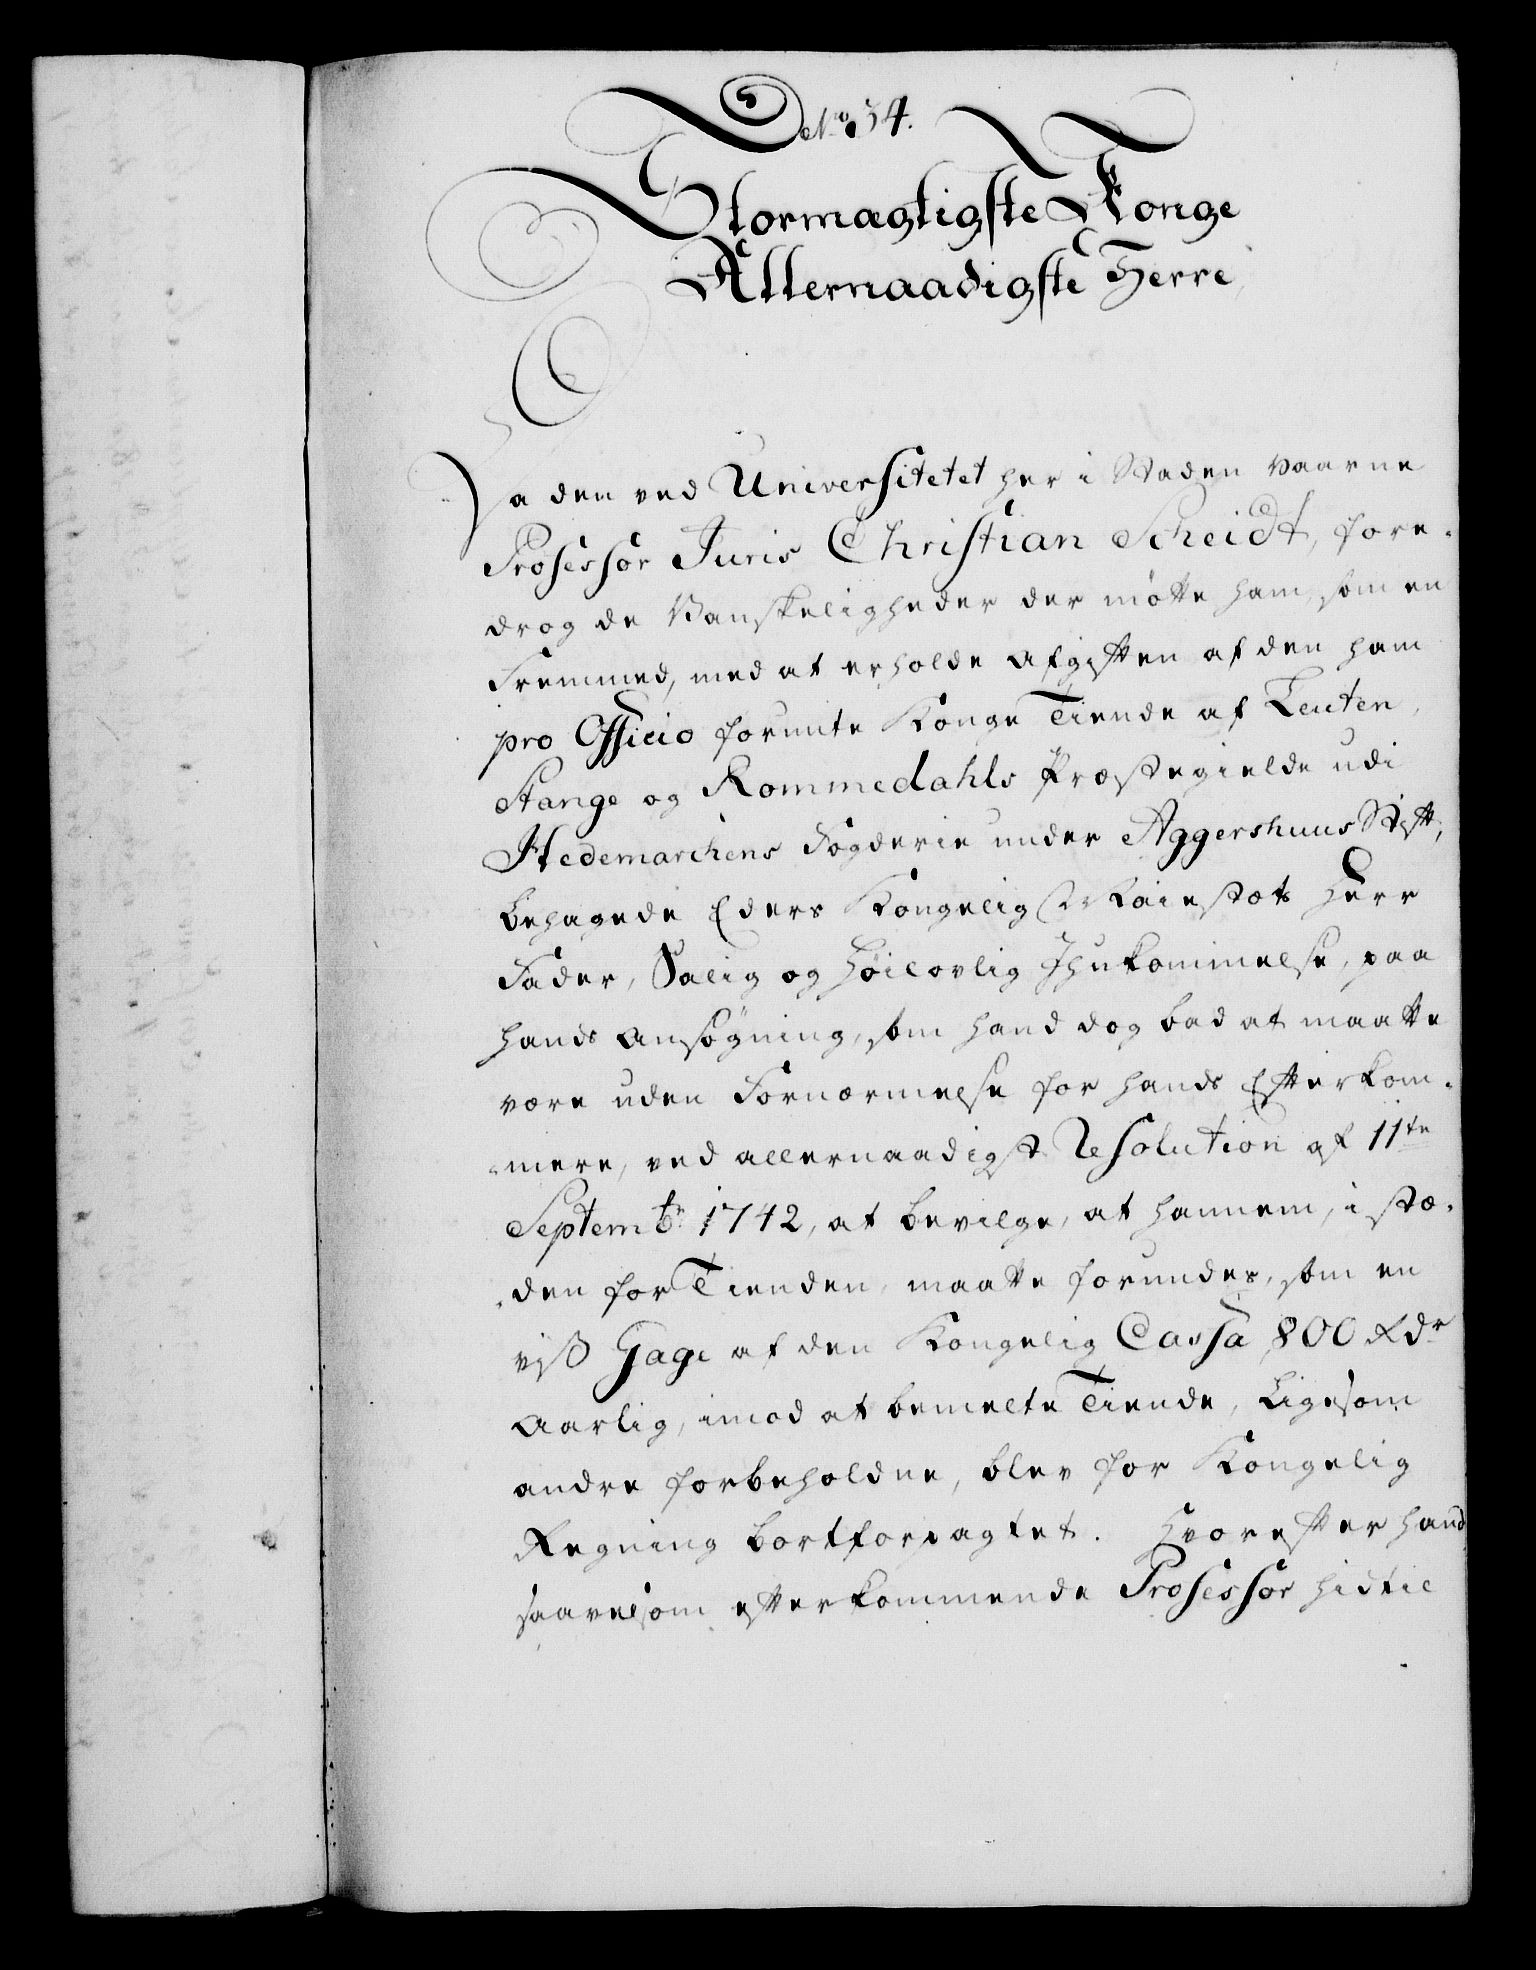 No 34.
Stormægtigste Konge
Allernaadigste Herre
Da den ved Universitetet her i Staden værne
Professor Juris Christian Scheidt, fore-
drog de Vanskeligheder der mötte ham, som en
Fremmed, med at erholde Afgiften af den ham
pro Officio forunte Konge Tiende af Leuten,
Stange og Rommedahls Præstegielde udi
Hedemarchens Fogderie under Aggershuus Stift,
behagede Eders Kongelig Maiestæts Herr
Fader, Salig og Höilovlig Ihukommelse, paa
hands Ansögning, som hand dog bad at maatte
være uden Fornærmelse for hands Efterkom-
mere, ved allernaadigst Resolution af 11te
Septembr 1742, at bevilge, at hannem, i stæ-
den for Tienden, maatte forundes, som en
viß Gage af den Kongelig Cassa 800 Rdr
Aarlig, imod at bemelte Tiende, Ligesom
andre forbeholdne, blev for Kongelig
Regning bortforpagtet. Hvorefter hand
saavelsom efterkommende Professor hidtil